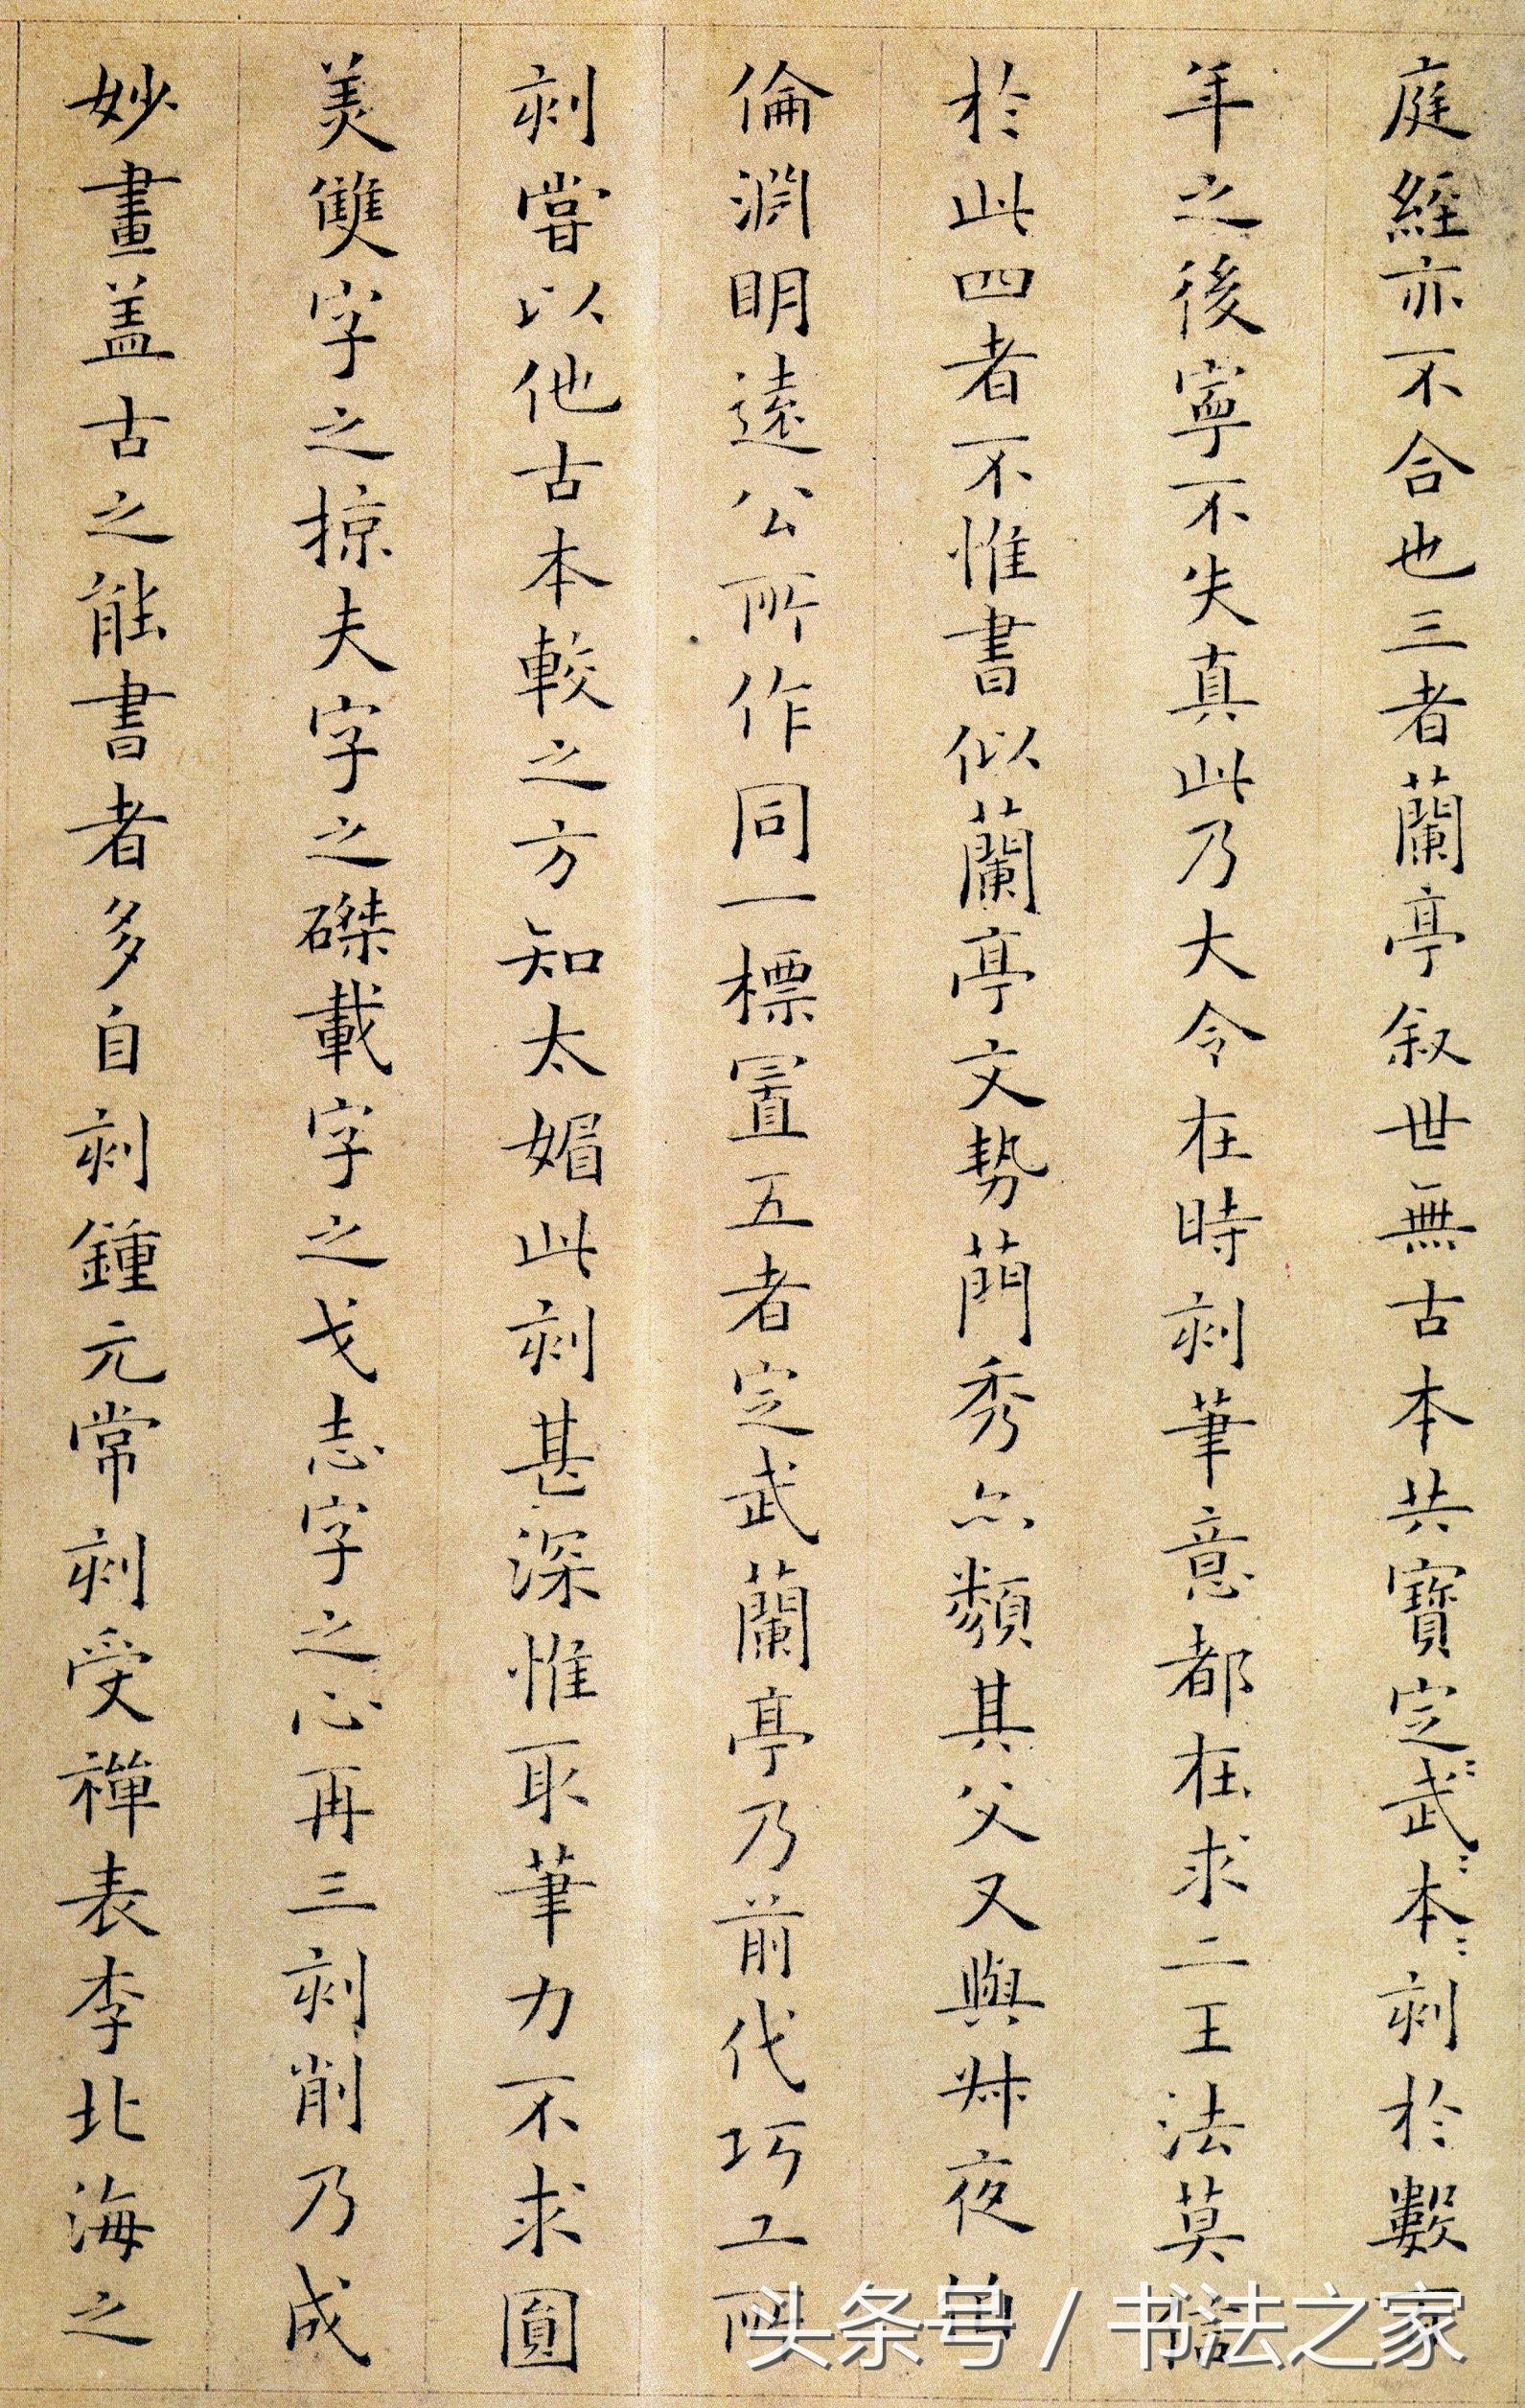 庭經亦不合也三者蘭亭叙世無古本共寶定武本刻於數
年之後寧不失真此乃大令在時刻筆意都在求二王法莫
於此四者不惟書似蘭亭文勢簡秀亦類其父又與叔夜
倫淵明遠公所作同一標置五者定武蘭亭乃前代巧工所
刻嘗以他古本較之方知太媚此刻甚深惟取筆力不求圓
美雙字之掠夫字之磔載字之戈志字之心再三刻削乃成
妙畫盖古之能書者多自刻鍾元常刻受禪表李北海之
头条号 / 书法之家